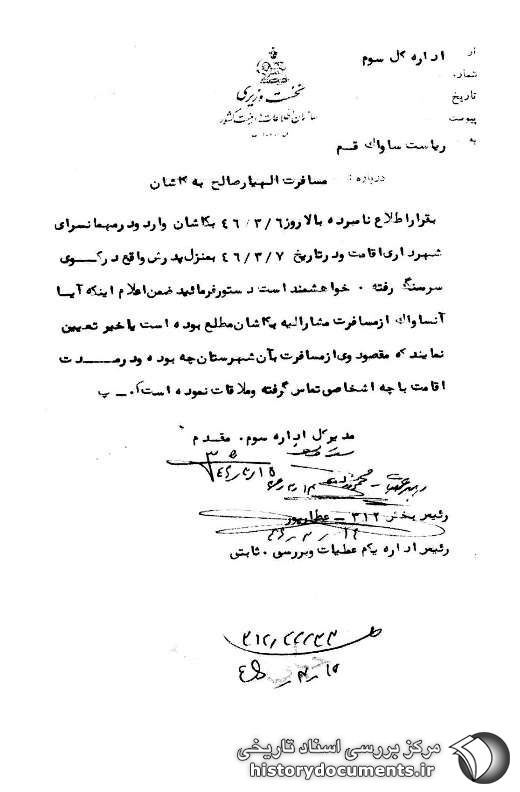 از اداره کل سوم
شماره
تاریخ
پیوست
نخست وزیری
سازمان اطلاعات و امنیت کشور
به ریاست ساواک قم
درباره: مسافرت الهیار صالح به کاشان
بقرار اطلاع نامبرده بالا روز ٤٦/٣/٦ بکاشان وارد و در مهمانسرای
شهرداری اقامت و در تاریخ ٤٦/٣/٧ بمنزل پدرش واقع در کوی
سرسنگ رفته ٠ خواهشمند است دستور فرمائید ضمن اعلام اینکه آیا
آنساواک از مسافرت مشارالیه بکاشان مطلع بوده است یا خیر تعیین
نمایند که مقصود وی از مسافرت بآن شهرستان چه بوده و در مدت
اقامت با چه اشخاصی تماس گرفته و ملاقات نموده است ٠ پ
مدیر کل اداره سوم ٠ مقدم
رئیس بخش ٣١٢ – عطارپور
رئیس اداره یکم عملیات و بررسی ٠ ثابتی
مرکز بررسی اسناد تاریخی
historydocuments.ir